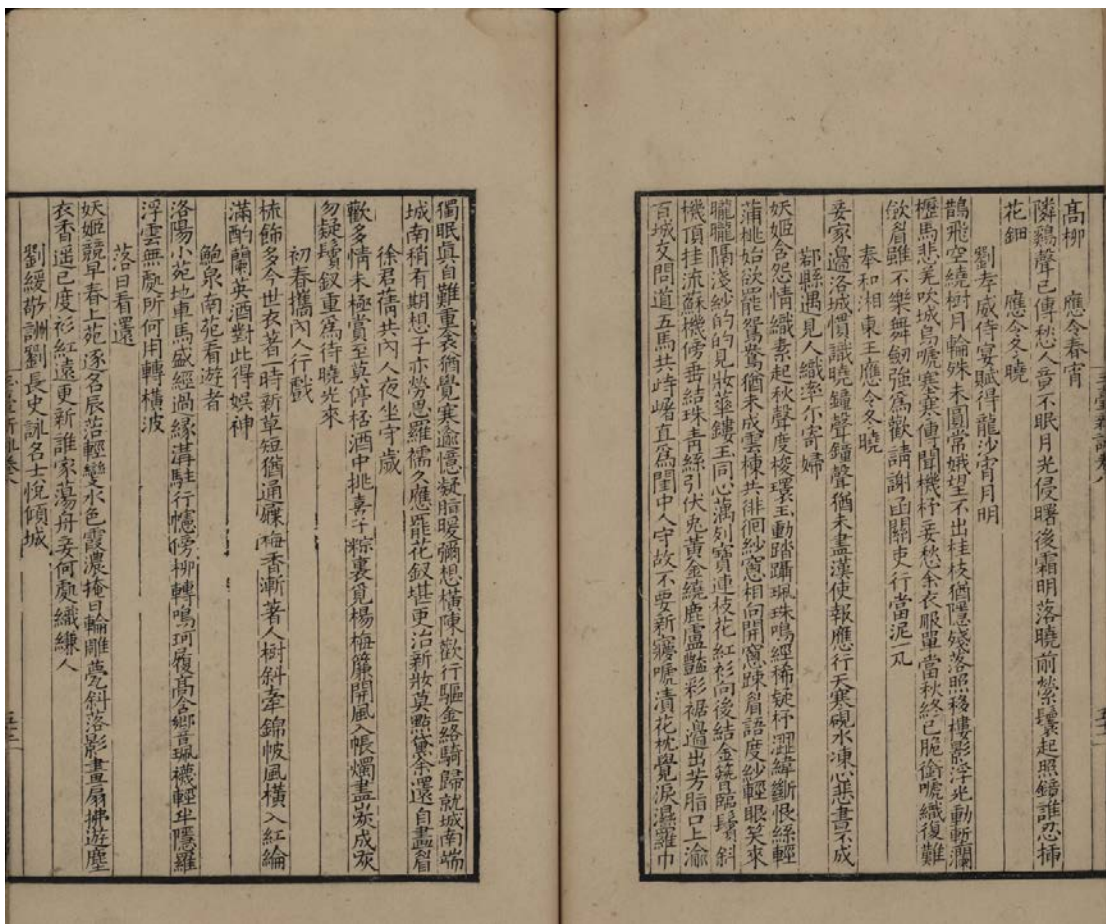 高柳　應令春宵
隣鷄聲已傳愁人竟不眠月光侵曙後霜明落曉前縈鬟起照鏡誰忍插
花鈿　應令冬曉
劉孝威侍宴賦得龍沙宵月明
鵲飛空繞樹月輪殊未圓常娥望不出桂枝猶隱殘落照移樓影浮光動壍瀾
櫪馬悲羌吹城烏啼塞寒傳聞機杼妾愁余衣服單當秋終已脆銜啼織復難
歛眉雖不樂舞劒強爲歡請謝函關吏行當泥一丸
奉和湘東王應令冬曉
妾家邊洛城慣識曉鐘聲鐘聲猶未盡漢使報應行天寒硯水凍心悲書不成
鄀縣遇見人織率尓寄婦
妖姬含怨情織素起秋聲度梭環玉動踏躡珮珠鳴經稀疑杼澀緯斷恨絲輕
蒲桃始欲罷鴛鴦猶未成雲棟共徘徊紗窻相向開窻踈眉語度紗輕眼笑來
朧朧隔淺紗的的見妝華鏤玉同心藕列寶連枝花紅衫向後結金簪臨鬢斜
機頂挂流蘇機傍垂結珠青絲引伏兔黃金繞鹿盧豔彩裾邊出芳脂口上渝
百城交問道五馬共峙嶓直爲閨中人守故不要新寢啼漬花枕覺淚濕羅巾
獨眠眞自難重衾猶覺寒逾憶凝脂暖彌想橫陳歡行驅金絡騎歸就城南端
城南稍有期想子亦勞思羅襦久應罷花釵堪更治新妝莫點黛余還自畫眉
徐君蒨共內人夜坐守歲
歡多情未極賞至莫停桮酒中挑喜子粽裏覓楊梅簾開風入帳燭盡炭成灰
勿疑鬢釵重爲待曉光來
初春攜內人行戲
梳飾多今世衣著一時新草短猶通屧梅香漸著人樹斜牽錦帔風橫入紅綸
滿酌蘭英酒對此得娛神
鮑泉南苑看遊者
洛陽小苑地車馬盛經過緣溝駐行幰傍柳轉鳴珂履高含響珮襪輕半隱羅
浮雲無處所何用轉橫波
落日看還
妖姬競早春上苑逐名辰苔輕變水色霞濃掩日輪雕甍斜落影畫扇拂遊塵
衣香遥已度衫紅遠更新誰家蕩舟妾何處織縑人
劉緩敬詶劉長史詠名士悅傾城